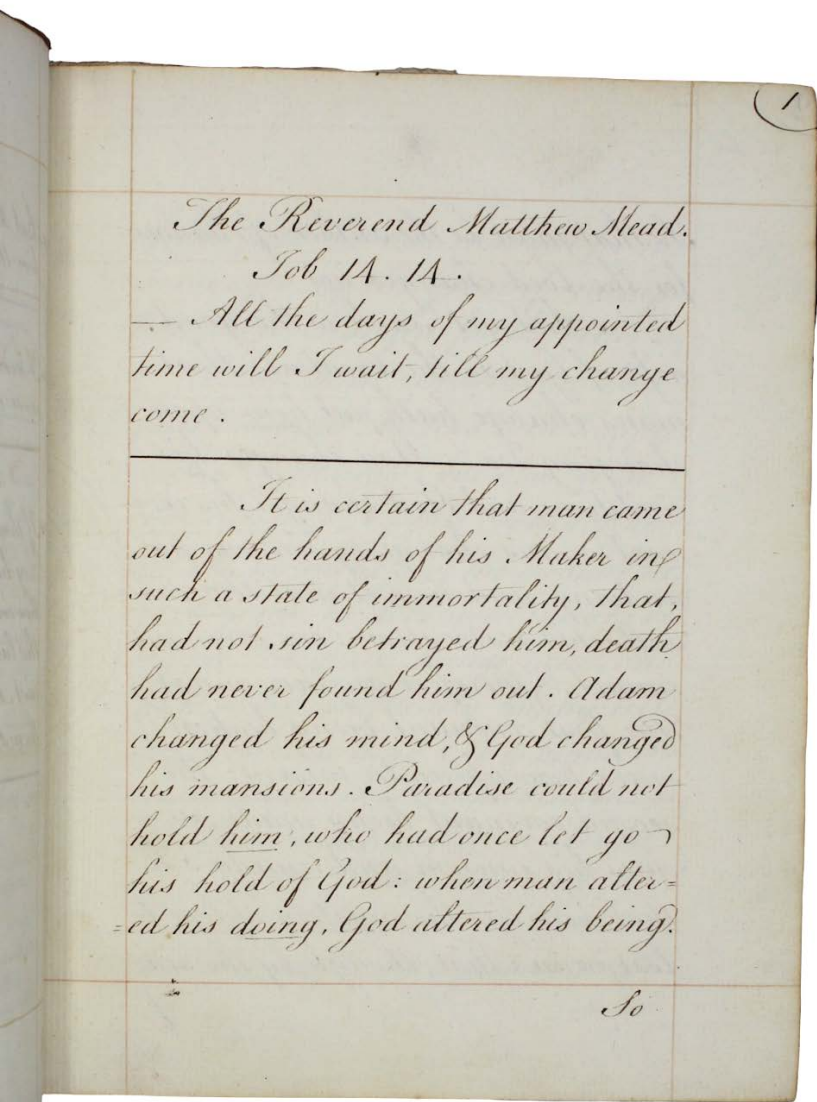 1
The Reverend Matthew Mead.
Job 14. 14.
— All the days of my appointed
time will I wait, till my change
come.
It is certain that man came
out of the hands of his Maker in
such a state of immortality, that,
had not sin betrayed him, death
had never found him out. Adam
changed his mind, & God changed
his mansions. Paradise could not
hold him, who had once let go
his hold of God: when man alter=
=ed his doing, God altered his being.
So